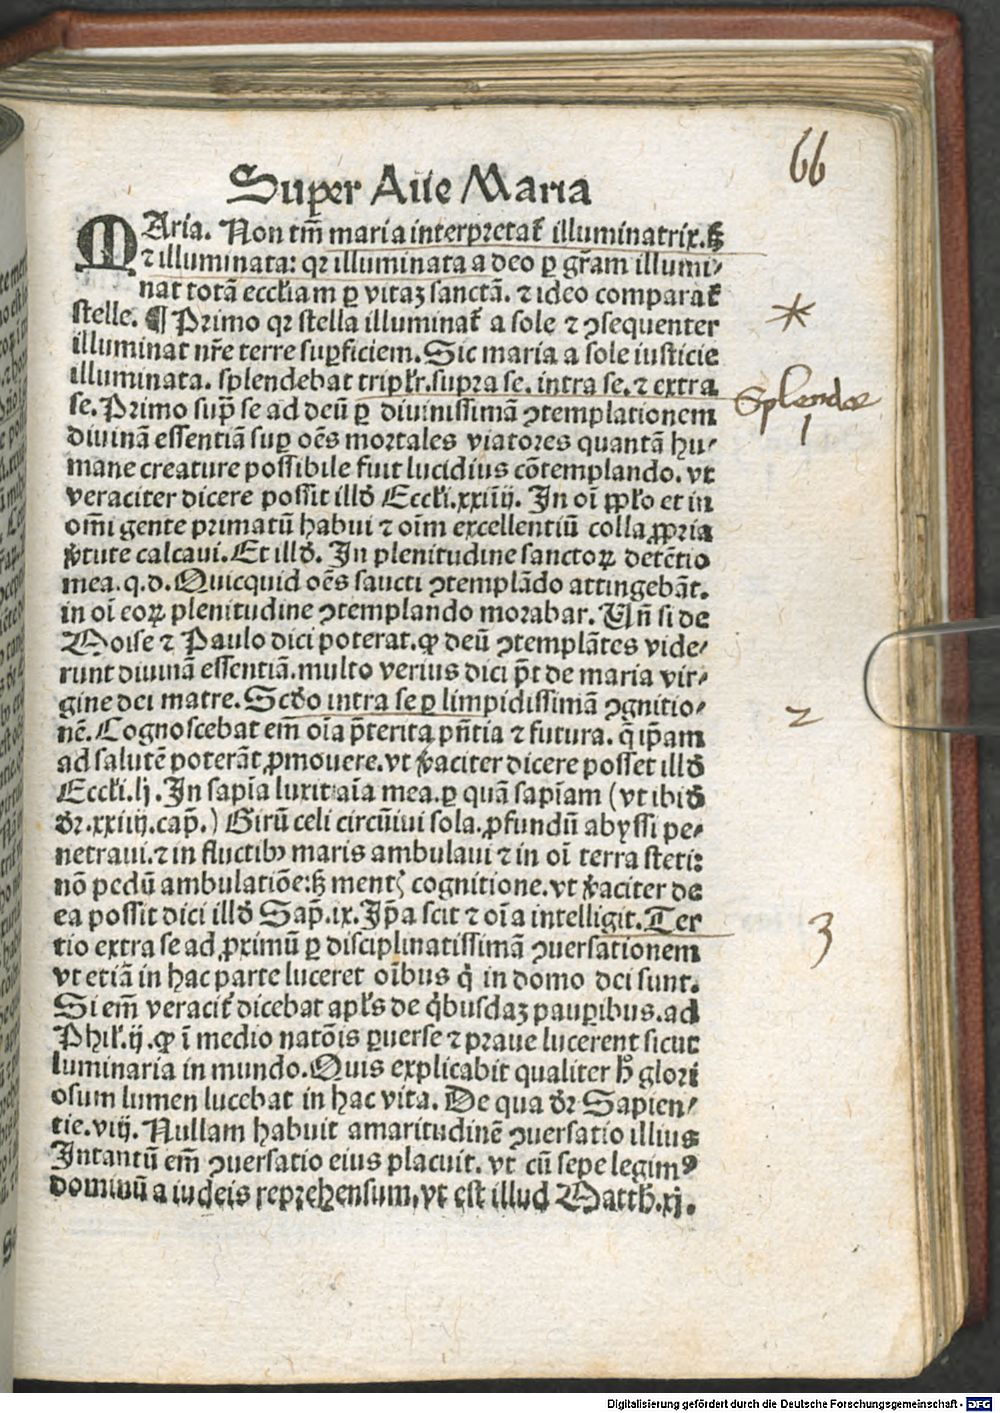 66
Super Aue Maria
MAria. Non tm̄ maria interpretat᷑ illuminatrix. ꝫ
⁊ illuminata: qꝛ illuminata a deo ꝑ gr̄am illumi-
nat totā eccl̓iam ꝑ vitaꝫ sanctā. ⁊ ideo comparat᷑
stelle. ¶ Primo qꝛ stella illuminat᷑ a sole ⁊ ꝯsequenter
illuminat nr̄e terre suꝑficiem. Sic maria a sole iusticie
illuminata. splendebat tripl̓r. supra se. intra se. ⁊ extra
se. Primo sup̄ se ad deū ꝑ diuinissimā ꝯtemplationem
diuinā essentiā suꝑ oēs mortales viatores quantā hu-
mane creature possibile fuit lucidius cōtemplando. vt
veraciter dicere possit illđ Eccl̓i. xxiiij. In oī ppl̓o et in
om̄i gente primatū habui ⁊ oīm excellentiū colla ꝓpria
v̓tute calcaui. Et illđ. In plenitudine sanctoꝝ detētio
mea. q. d. Quicquid oēs sancti ꝯtemplādo attingebāt.
in oī eoꝝ plenitudine ꝯtemplando morabar. Vn̄ si de
Moise ⁊ Paulo dici poterat. ꝙ deū ꝯtemplātes vide-
runt diuinā essentiā. multo verius dici pōt de maria vir-
gine dei matre. Scđo intra se ꝑ limpidissimā ꝯgnitio-
nē. Cognoscebat em̄ oīa p̄terita p̄ntia ⁊ futura. q̄ ip̄am
ad salutē poterāt ꝓmouere. vt v̓aciter dicere posset illđ
Eccl̓i. lj. In sapīa luxit aīa mea. ꝑ quā sapīam (vt ibiđ
dr̄. xxiiij. cap̄.) Girū celi circūiui sola. ꝓfundū abyssi pe-
netraui. ⁊ in fluctibꝰ maris ambulaui ⁊ in oī terra steti:
nō pedū ambulatiōe: ꝫ mentꝭ cognitione. vt v̓aciter de
ea possit dici illđ Sap̄. ix. Ip̄a scit ⁊ oīa intelligit. Ter
tio extra se ad ꝓximū ꝑ disciplinatissimā ꝯuersationem
vt etiā in hac parte luceret oībus q̇ in domo dei sunt.
Si em̄ veracit᷑ dicebat apl̓s de q̇busdaꝫ pauꝑibus. ad
Phil̓. ij. ꝙ ī medio natōis ꝑuerse ⁊ praue lucerent sicut
luminaria in mundo. Quis explicabit qualiter ħ glori
osum lumen lucebat in hac vita. De qua dr̄ Sapien-
tie. viij. Nullam habuit amaritudinē ꝯuersatio illius
Intantū em̄ ꝯuersatio eius placuit. vt cū sepe legimꝰ
dominū a iudeis reprehensum, vt est illud Matth. xj.
*
Splendor
1
2
3
Digitalisierung gefördert durch die Deutsche Forschungsgemeinschaft - DFG